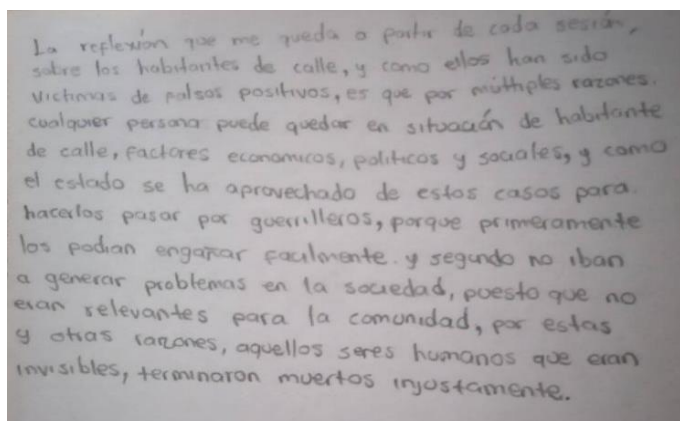 La reflexión que me queda a partir de cada sesión,
sobre los habitantes de calle, y como ellos han sido
victimas de falsos positivos, es que por múltiples razones.
cualquier persona puede quedar en situación de habitante
de calle, factores economicos, politicos y sociales, y como
el estado se ha aprovechado de estos casos para
hacerlos pasar por guerrilleros, porque primeramente
los podian engañar facilmente. y segundo no iban
a generar problemas en la sociedad, puesto que no
eran relevantes para la comunidad, por estas
y otras razones, aquellos seres humanos que eran
invisibles, terminaron muertos injustamente.